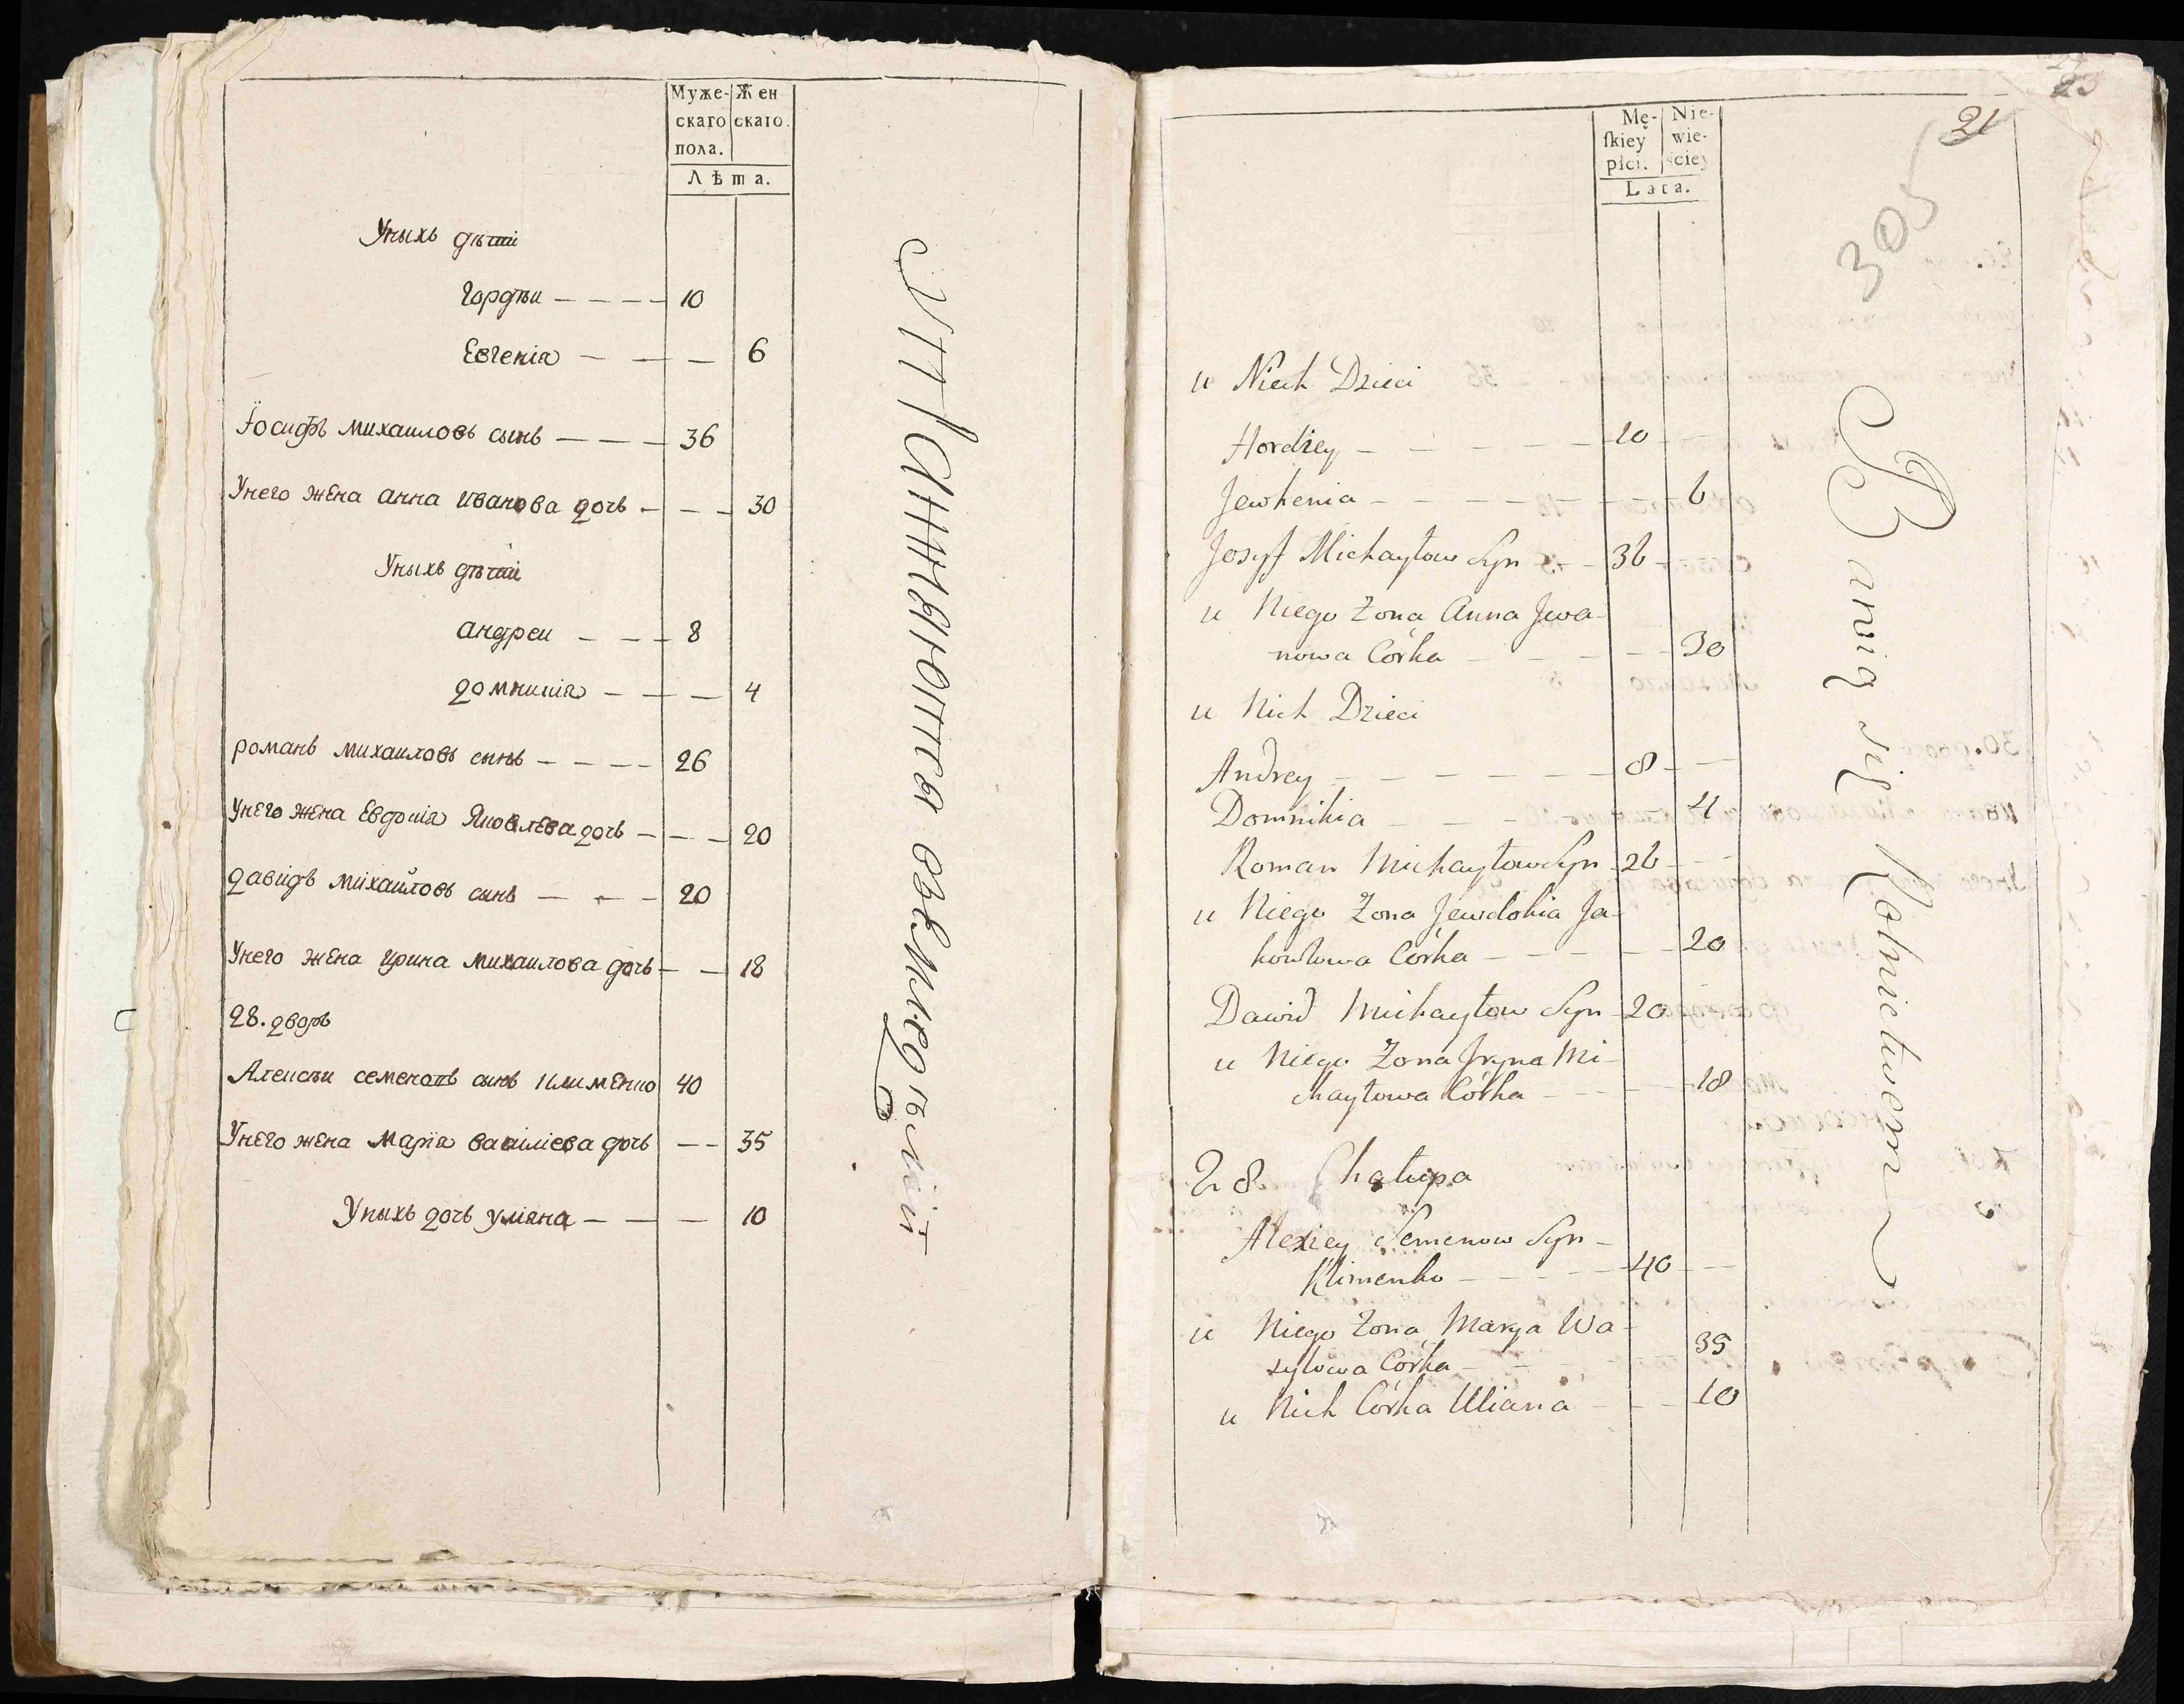 Муже-
скаго
пола.
Жен
скаго.
Лѣта.
Уныхъ дѣтіи
Гордѣи — — — — 10
Евгенія — — — 6
Іосифъ михаиловъ сынъ — — — 36
Унего жена анна иванова дочь — — — 30
Уныхъ дѣтіи
андреи — — — 8
домникія — — — 4
романъ михаиловъ сынъ — — — — 26
Унего жена Евдокія Яковлева дочь — — — 20
давидъ михаиловъ сынъ — — — 20
Унего жена ирина михаилова дочь — — 18
28. дворъ
Алексѣи семеновъ сынъ клименко 40
Унего жена марїа василіева дочь — — 35
Уныхъ дочь уліяна — — — 10
упражняются въ земледѣліи
23
21
305
Mę-
skiey
płci.
Nie-
wie-
sciey
Lata.
u Niech Dzieci
Hordiey — — — — — 10 —
Jewhenia — — — — — — 6
Josyf Michayłow Syn — — 36 —
u Niego Zona Anna Jwa-
nowa Córka — — — — 30
u Nich Dzieci
Andrey — — — — — — 8 — —
Domnikia — — — — 4
Roman Michayłow Syn 26 — —
u Niego Zona Jewdokia Ja-
kowlowa Córka — — — — — 20
Dawid Michayłow Syn 20
u Niego Zona Jryna Mi-
chayłowa Córka — — — 18
28 Chałupa
Alexiey Semenow Syn —
Klimenko — — — — — 40 — —
u Niego Zona Marya Wa-
sylowa Córka — — — — 35
u Nich Córka Uliana — — — 10
Bawią się Rolnictwem